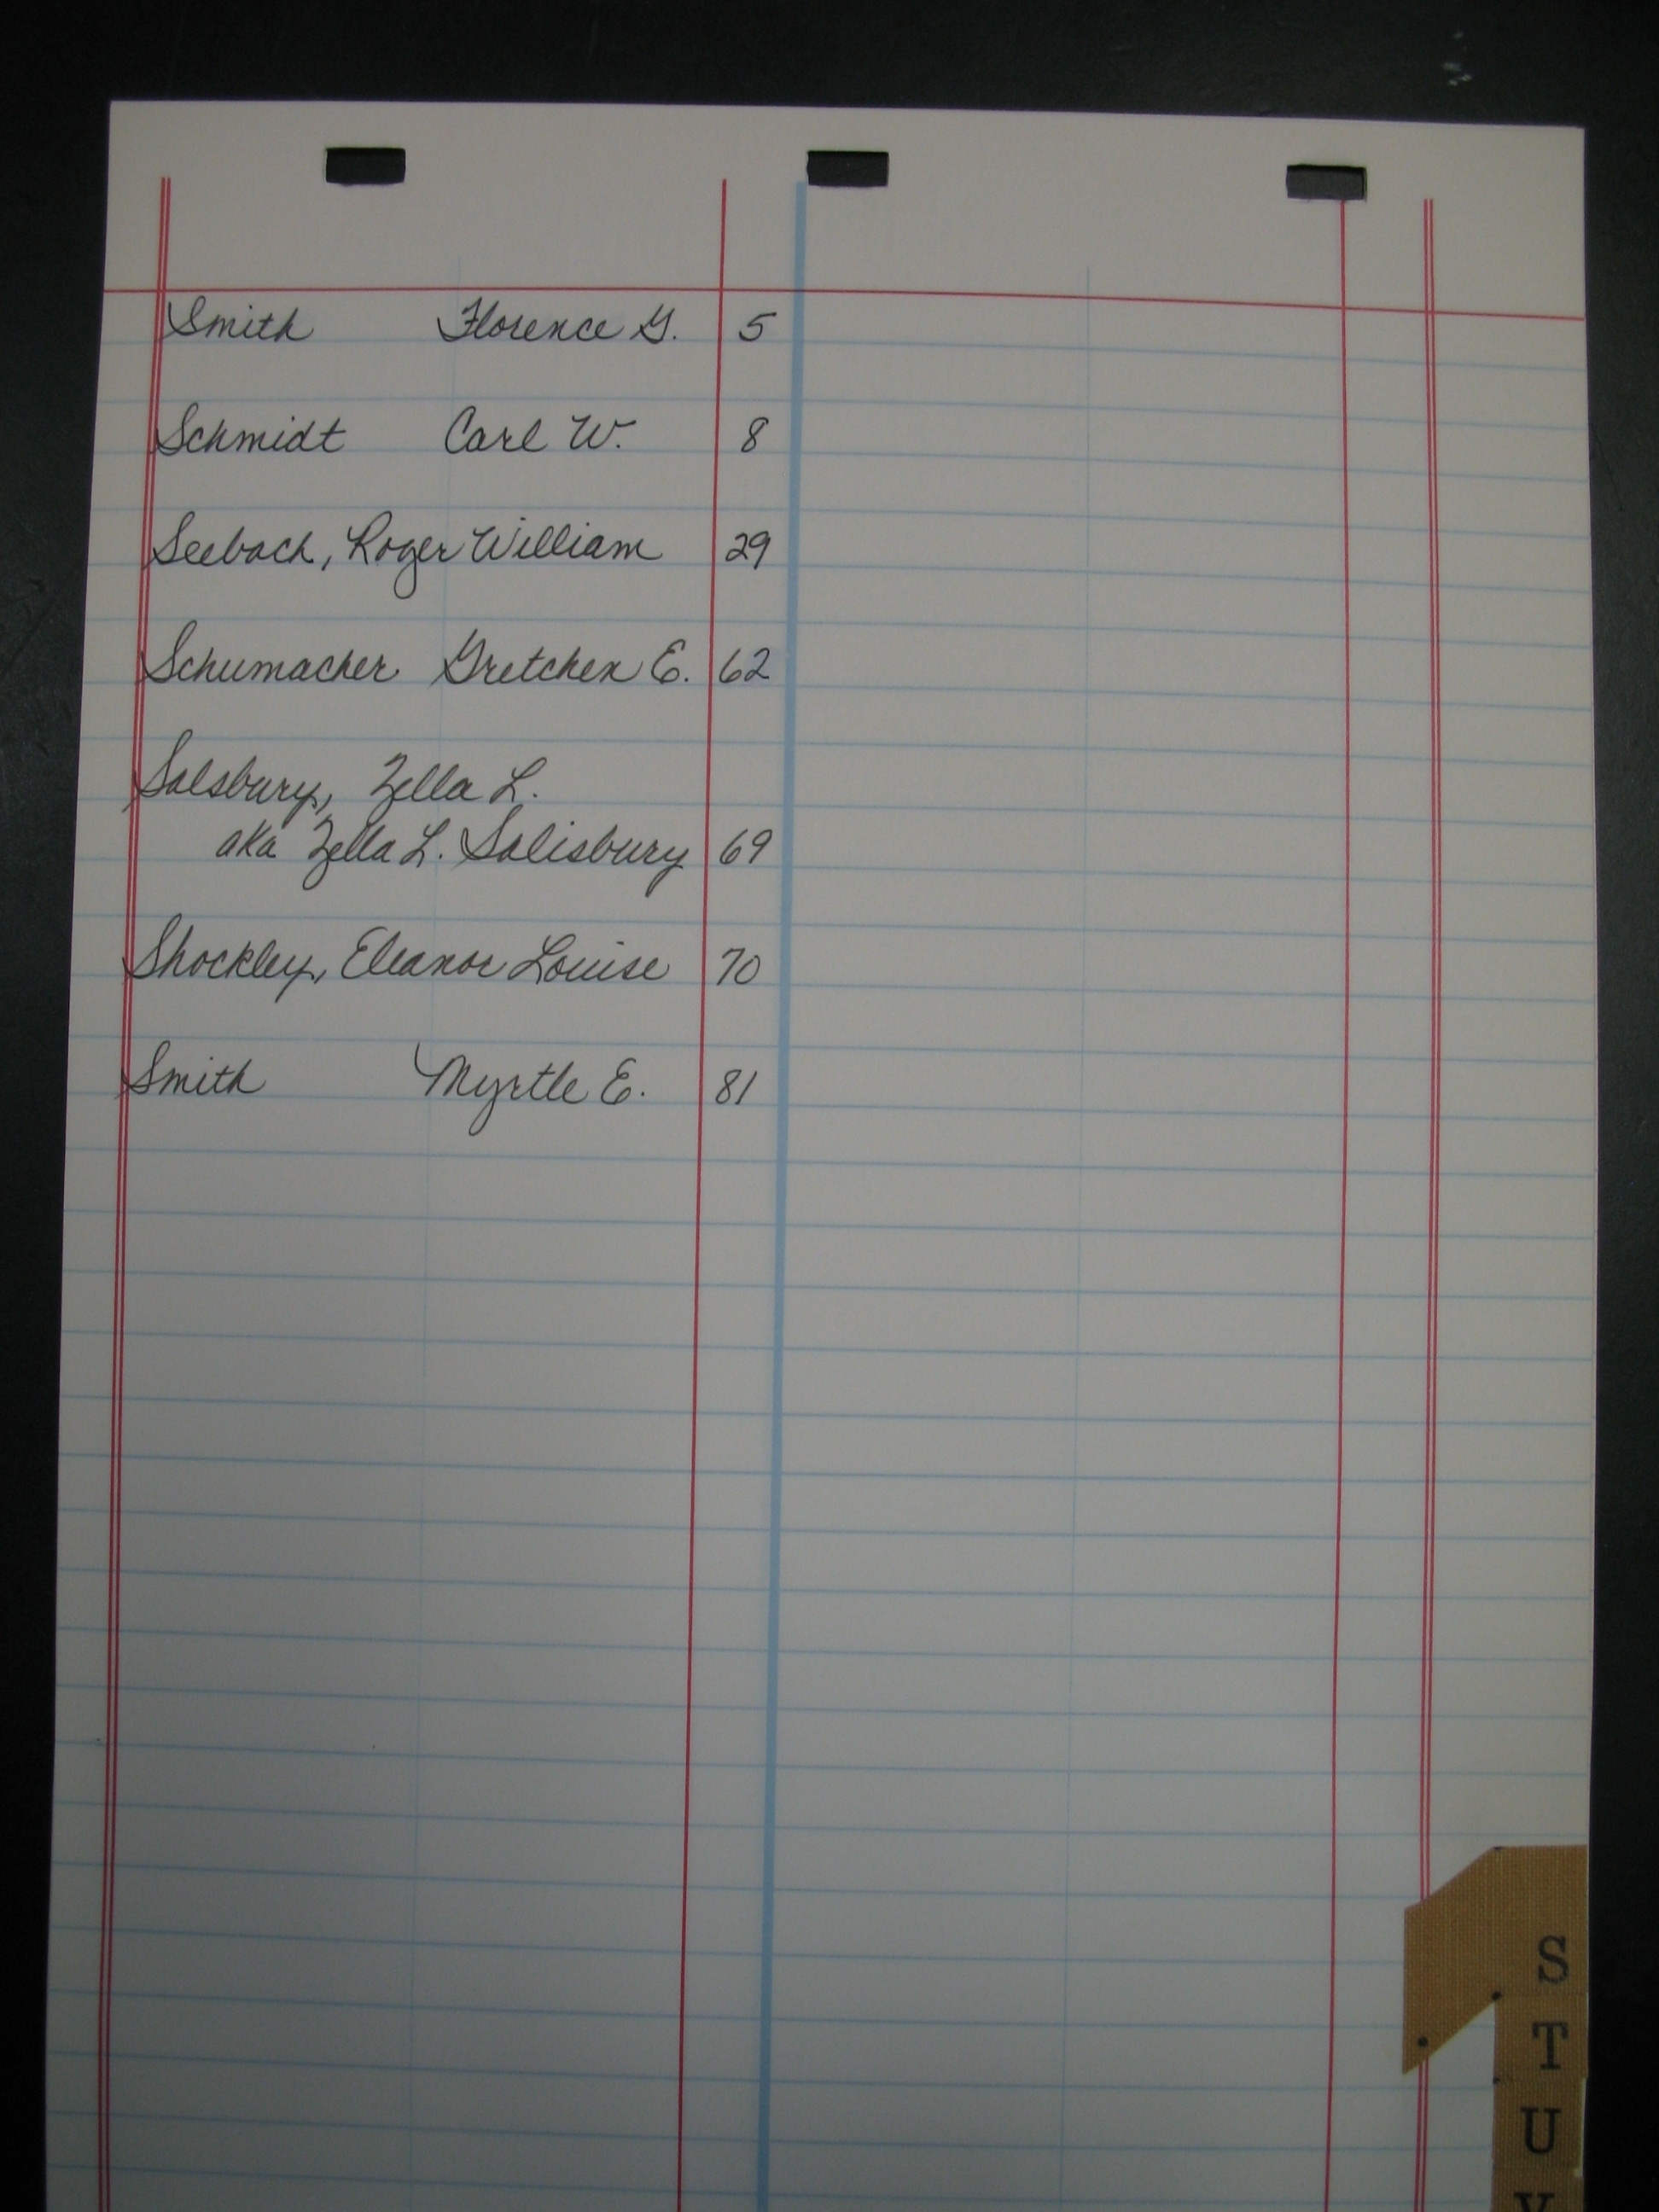 Smith Florence G. 5
Schmidt Carl W. 8
Seebach, Roger William 29
Schumacher Gretchen E. 62
Salsbury, Zella L.
aka Zella L. Salisbury 69
Shockley, Eleanor Louise 70
Smith Myrtle E. 81
S
T
U
V